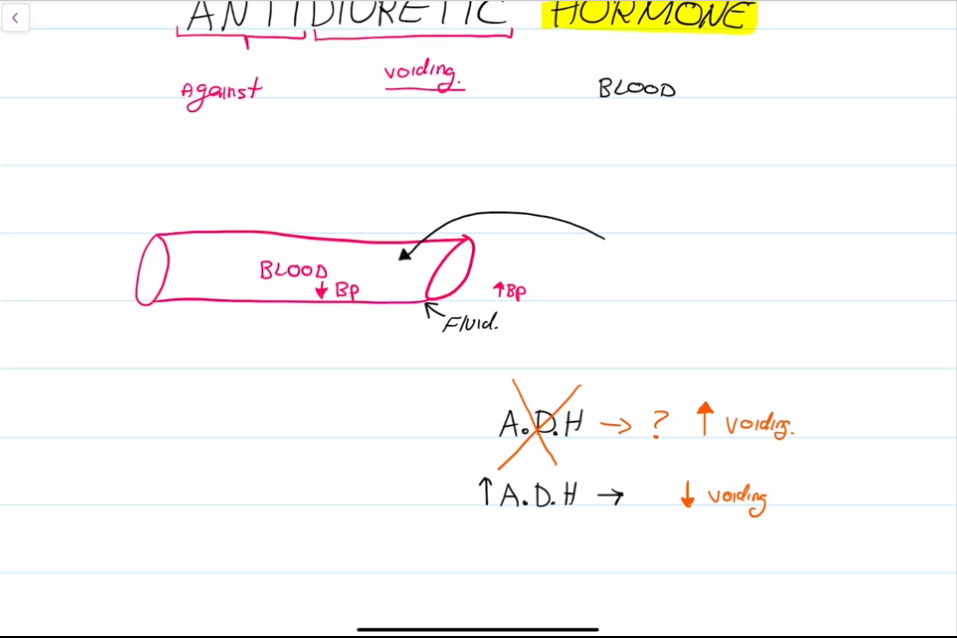 ANTIDIURETIC HORMONE
Against voiding. BLOOD
BLOOD
↓ Bp ↑ Bp
Fluid.
A.D.H → ? ↑ voiding.
↑ A.D.H → ↓ voiding